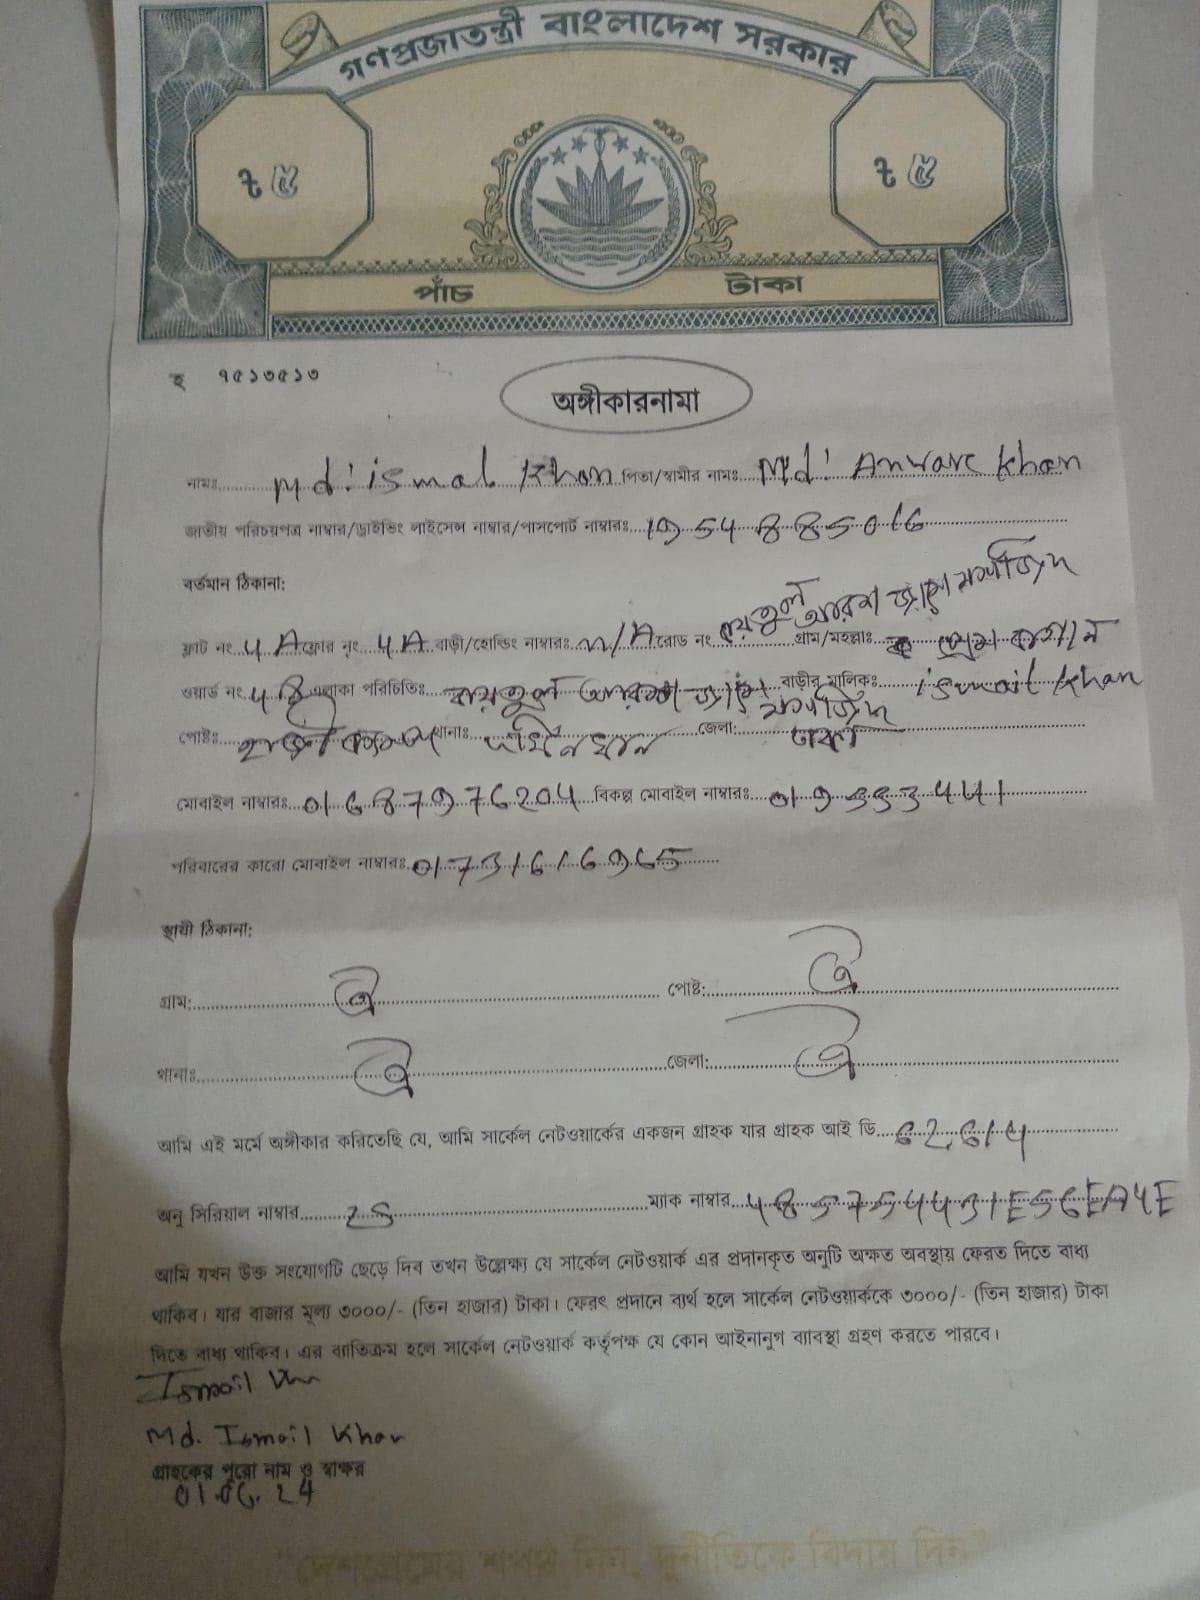 গণপ্রজাতন্ত্রী বাংলাদেশ সরকার
৳ ৫ ৳ ৫
পাঁচ টাকা
হ ৭৫১৩৫১৩
অঙ্গীকারনামা
নামঃ Md: ismal Khan পিতা/স্বামীর নামঃ Md: Anware Khan
জাতীয় পরিচয়পত্র নাম্বার/ড্রাইভিং লাইসেন্স নাম্বার/পাসপোর্ট নাম্বারঃ 1954885016
বর্তমান ঠিকানা:
ফ্লাট নং 4A ফ্লোর নং 4A বাড়ী/হোল্ডিং নাম্বারঃ n/A রোড নং বায়তুল আরশ জামে মসজিদ গ্রাম/মহল্লাঃ প্রেম বাগান
ওয়ার্ড নং 48 এলাকা পরিচিতিঃ বায়তুল আরশ জামে মসজিদ বাড়ীর মালিকঃ ismail khan
পোষ্টঃ থানাঃ দক্ষিনখান জেলা: ঢাকা
মোবাইল নাম্বারঃ 01687976204 বিকল্প মোবাইল নাম্বারঃ
পরিবারের কারো মোবাইল নাম্বারঃ 01731616965
স্থায়ী ঠিকানা:
গ্রাম: ঐ পোষ্ট: ঐ
থানাঃ ঐ জেলা: ঐ
আমি এই মর্মে অঙ্গীকার করিতেছি যে, আমি সার্কেল নেটওয়ার্কের একজন গ্রাহক যার গ্রাহক আই ডি 62614
অনু সিরিয়াল নাম্বার ম্যাক নাম্বার 485754431E56EA4E
আমি যখন উক্ত সংযোগটি ছেড়ে দিব তখন উল্লেক্ষ্য যে সার্কেল নেটওয়ার্ক এর প্রদানকৃত অনুটি অক্ষত অবস্থায় ফেরত দিতে বাধ্য
থাকিব। যার বাজার মূল্য ৩০০০/- (তিন হাজার) টাকা। ফেরৎ প্রদানে ব্যর্থ হলে সার্কেল নেটওয়ার্ককে ৩০০০/- (তিন হাজার) টাকা
দিতে বাধ্য থাকিব। এর ব্যাতিক্রম হলে সার্কেল নেটওয়ার্ক কর্তৃপক্ষ যে কোন আইনানুগ ব্যাবস্থা গ্রহণ করতে পারবে।
Ismail
Md. Ismail Khan
গ্রাহকের পুরো নাম ও স্বাক্ষর
01.06.24
"দেশপ্রেমের শপথ নিন, দুর্নীতিকে বিদায় দিন"